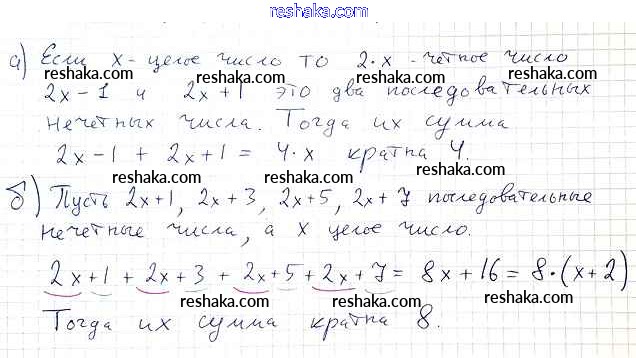 reshaka.com
а) Если x - целое число то 2·x - четное число
reshaka.com reshaka.com
2x-1 и 2x+1 это два последовательных
нечетных числа. Тогда их сумма
reshaka.com reshaka.com
2x-1 + 2x+1 = 4·x кратна 4.
reshaka.com
б) Пусть 2x+1, 2x+3, 2x+5, 2x+7 последовательные
reshaka.com reshaka.com
нечетные числа, а x целое число.
reshaka.com
2x+1 + 2x+3 + 2x+5 + 2x+7 = 8x+16 = 8·(x+2)
reshaka.com reshaka.com
Тогда их сумма кратна 8.
reshaka.com